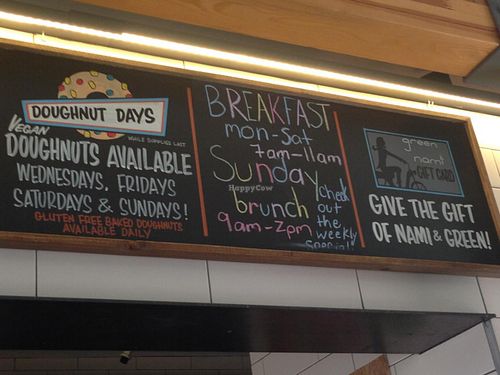 DOUGHNUT DAYS
WHILE SUPPLIES LAST
VEGAN
DOUGHNUTS AVAILABLE
WEDNESDAYS, FRIDAYS
SATURDAYS & SUNDAYS!
GLUTEN FREE BAKED DOUGHNUTS
AVAILABLE DAILY
BREAKFAST
mon-Sat
7am-11am
Sunday
brunch
9am-2pm
check
out
the
weekly
special!
HappyCow
green
nami
GIFT CARD
GIVE THE GIFT
OF NAMI & GREEN!